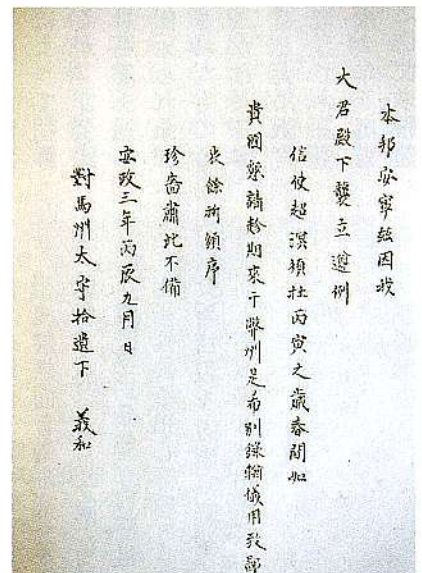 本邦安寧茲因我
大君殿下襲立遵例
信使超溟須在丙寅之歳春間如
貴国祭請趁期来于弊州是布別録輶儀用致鄙
衷餘祈順序
珍嗇肅此不備
安政三年丙辰九月 日
對馬州太守拾遺平 義和